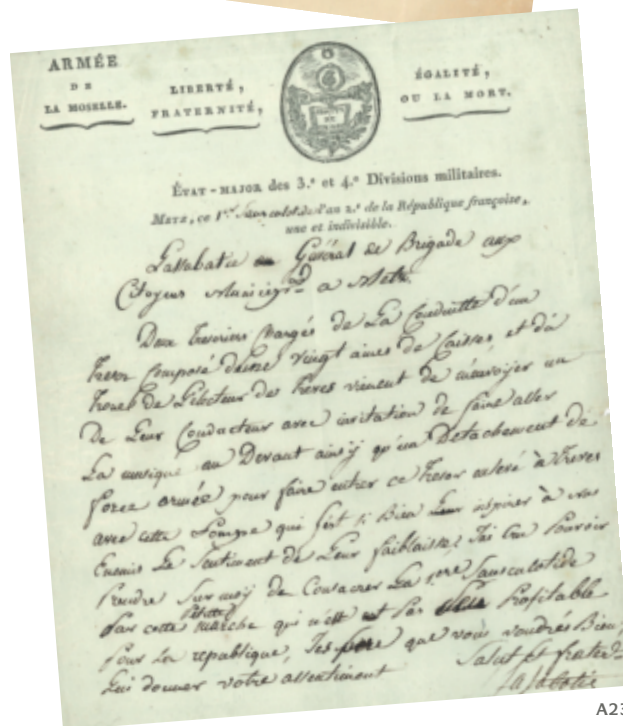 ARMÉE
DE
LA MOSELLE.
LIBERTÉ,
FRATERNITÉ,
ÉGALITÉ,
OU LA MORT.
ÉTAT-MAJOR des 3.e et 4.e Divisions militaires.
METZ, ce 1.er Sansculotide l'an 2.e de la République françoise,
une et indivisible.
Général de Brigade aux
Citoyens a Metz
Deux chargés de La Conduitte d'un
Tresor Composé d'une vingtaines de Caisses et du
de L'électeur des treves viennent de m'envoyer un
De Leur Conducteur avec invitation de faire aller
La musique au Devant ainsy qu'un Detachement de
force armée pour faire entrer ce Tresor à Treves
avec cette Pompe qui si Bien Leur inspirer à nos
Ennemis Le Sentiment de Leur faiblaisse, J'ai Cru Pouvoir
Prendre Sur moy de Consacrer La 1.ere Sansculotide
Par cette Petitte marche qui n'est Pas Profitable
Pour La republique, que vous voudrés Bien
Lui donner votre assentiment
Salut et
A23